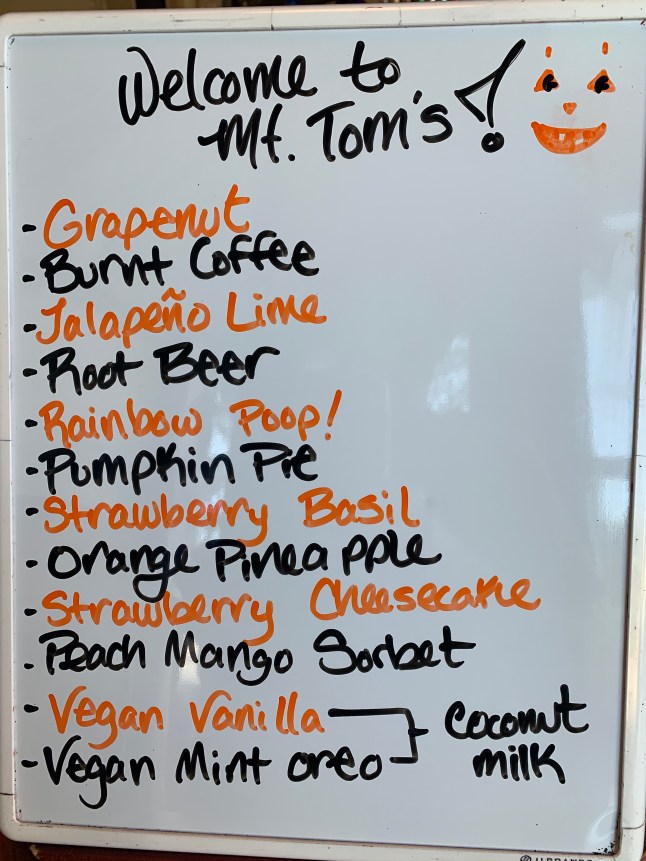 Welcome to
Mt. Tom's!
- Grapenut
- Burnt Coffee
- Jalapeño Lime
- Root Beer
- Rainbow Poop!
- Pumpkin Pie
- Strawberry Basil
- Orange Pineapple
- Strawberry Cheesecake
- Peach Mango Sorbet
- Vegan Vanilla
- Vegan Mint oreo
Coconut
milk